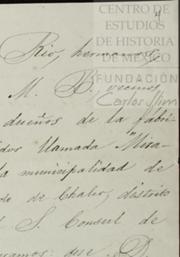 4
CENTRO DE
ESTUDIOS
DE HISTORIA
DE MEXICO
FUNDACIÓN
Carlos Slim
Rio, hermanos
M. B. vecinos
dueños de la fabri
dos llamada "Mira
a municipalidad de
de Chalco, distrito
l S. Consul de
que D.